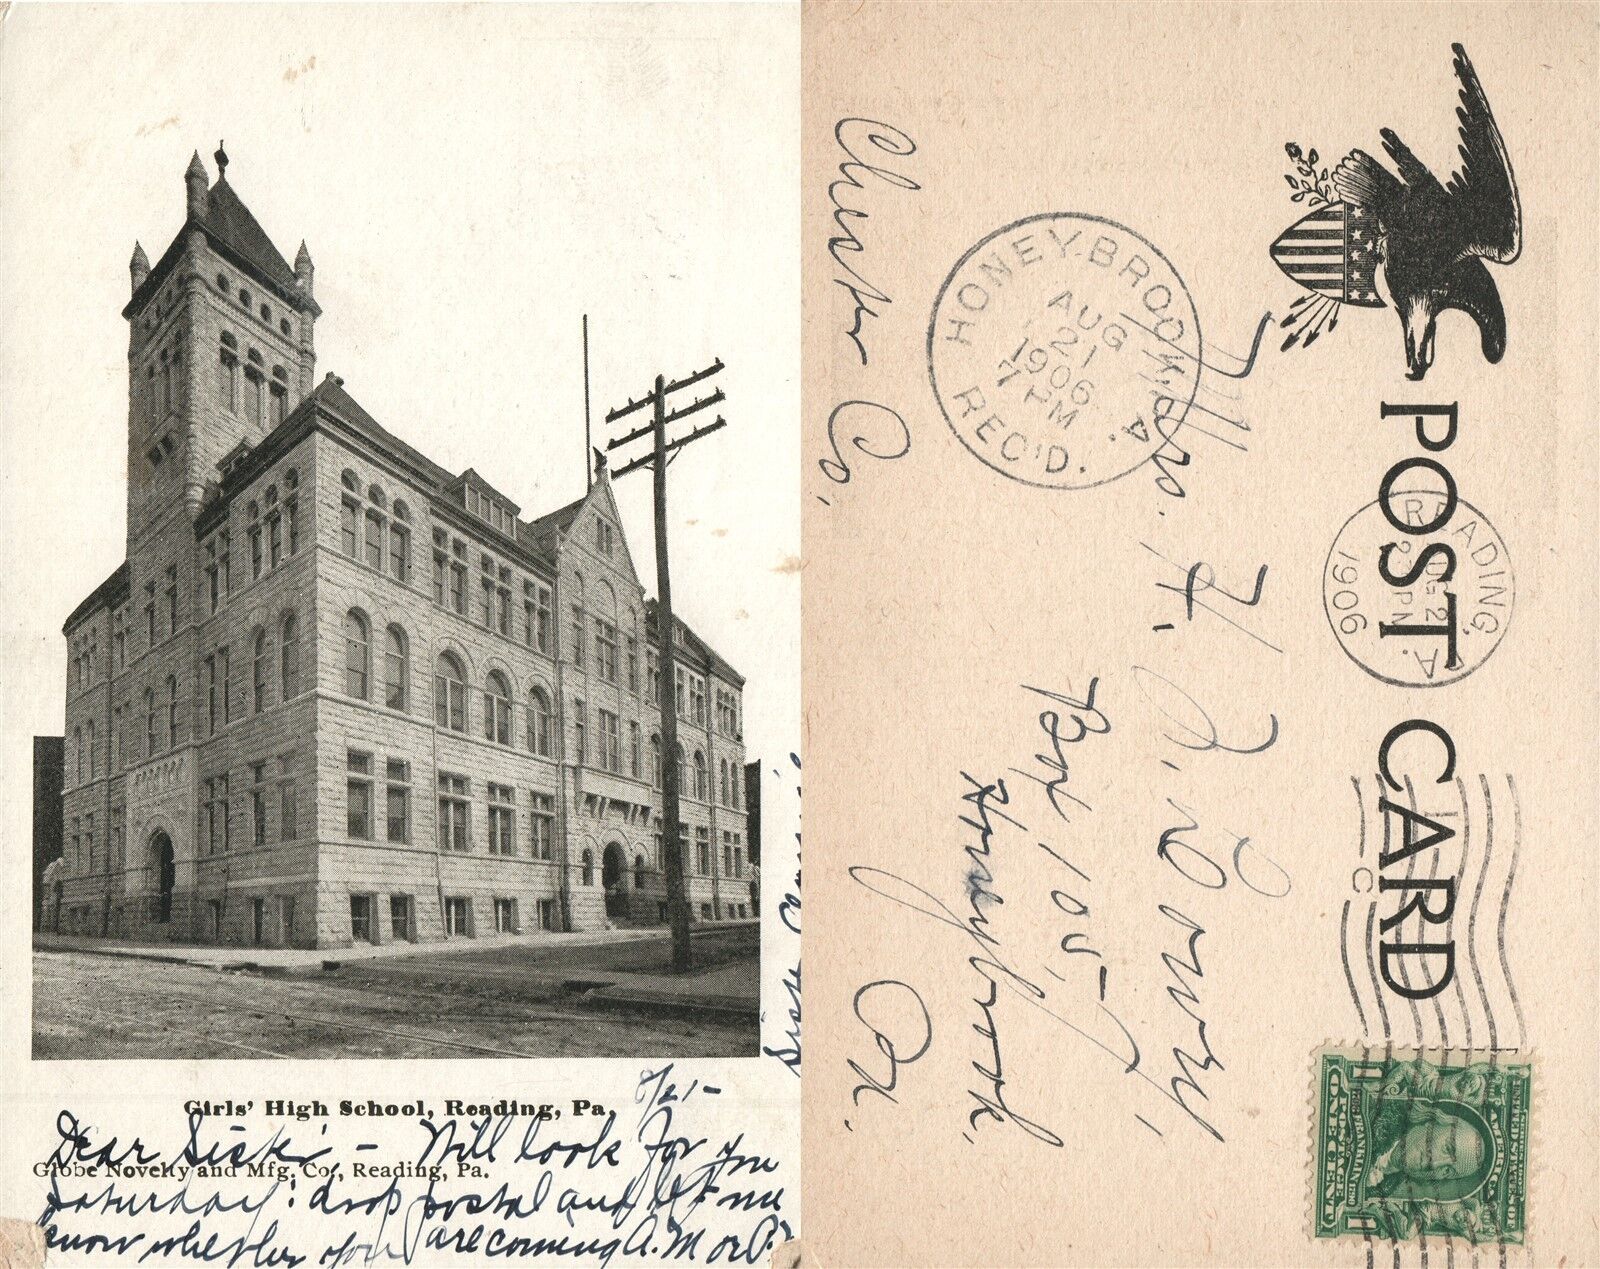 8/21-
Girls' High School, Reading, Pa.
Dear Sister - Will look for you
Globe Novelty and Mfg. Co., Reading, Pa.
Saturday! drop postal and let me
know whether you are coming A.M or P.
Sister
POST CARD
READING, PA.
1906
HONEY BROOK, PA.
AUG
21
1906
7 PM
REC'D.
Mrs. H.
Box 105,
Honeybrook,
Chester Co. Pa.
C
POSTAGE
ONE CENT
FRANKLIN